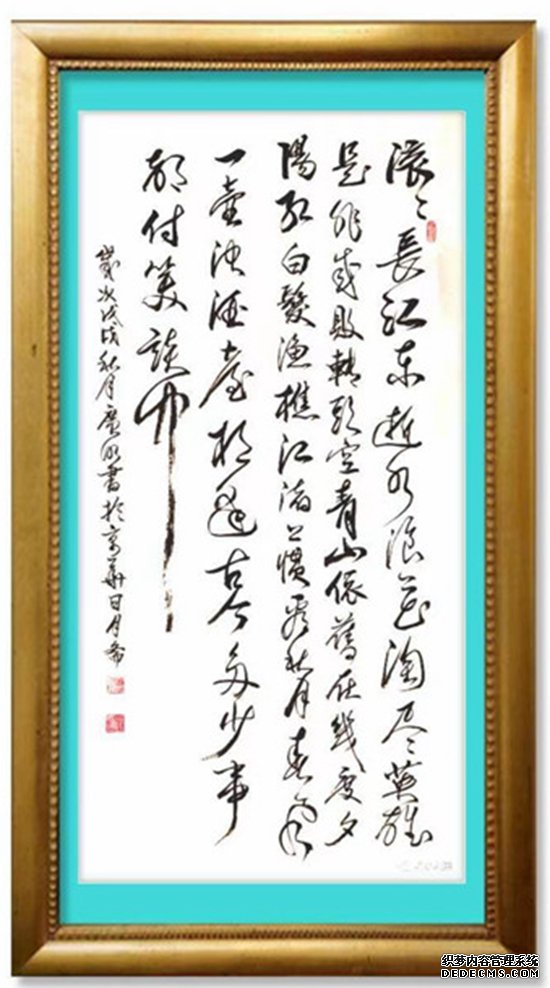 滚々長江东逝水浪花淘尽英雄
是非成敗轉頭空青山依舊在幾度夕
陽红白髮渔樵江渚上慣看秋月春風
一壶浊酒喜相逢古今多少事
都付笑談中
歲次戊戌秋月廣书於京華日月斋
织梦内容管理系统
DEDECMS.COM